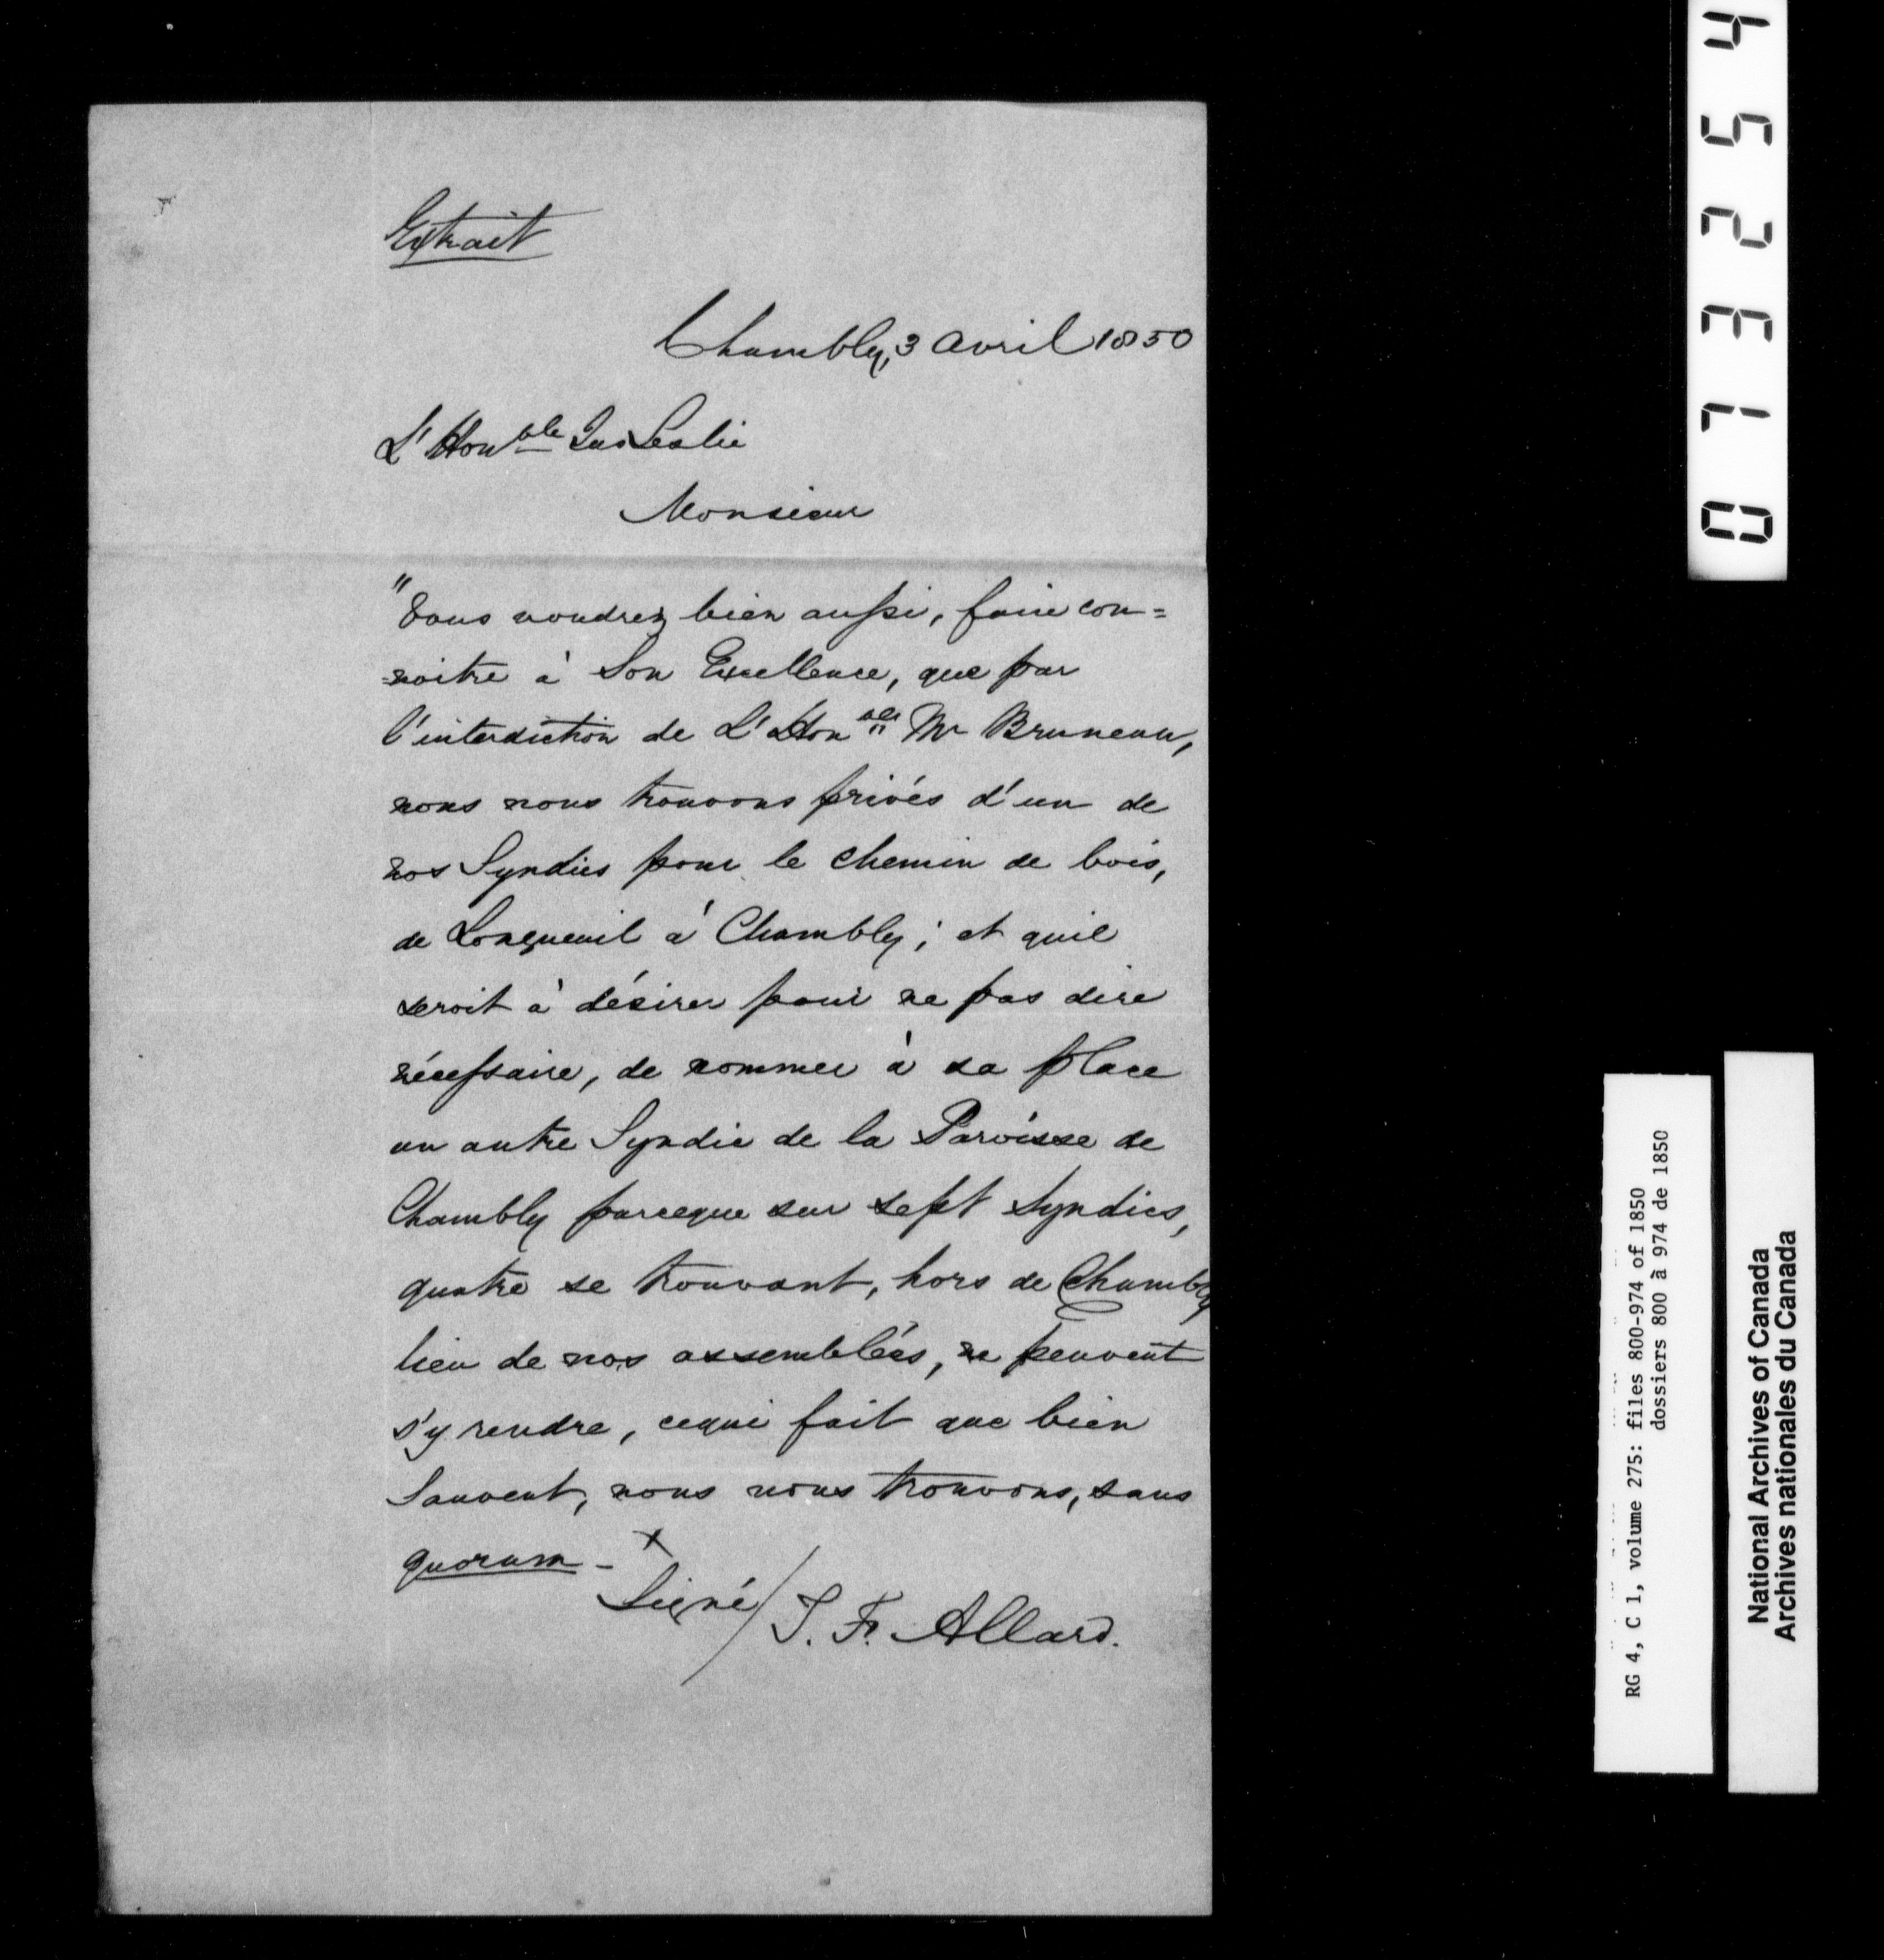 Extrait
Chambly, 3 Avril 1850
L'Honble Jas Leslie
Monsieur
"Vous voudrez bien aussi, faire con=
=noitre à Son Excellence, que par
l'interdiction de L'Honble Mr Bruneau,
nous nous trouvons privés d'un de
nos Syndics pour le chemin de bois,
de Longueuil à Chambly; et quil
seroit à désirer pour ne pas dire
nécessaire, de nommer à sa place
un autre Syndic de la Paroisse de
Chambly parceque sur sept Syndics,
quatre se trouvant, hors de Chambly
lieu de nos assemblées, ne peuvent
s'y rendre, cequi fait que bien
Souvent, nous nous trouvons, sans
quorum - x
Signé/ T. Fr. Allard.
073254
RG 4, C 1, volume 275: files 800-974 of 1850
dossiers 800 à 974 de 1850
National Archives of Canada
Archives nationales du Canada